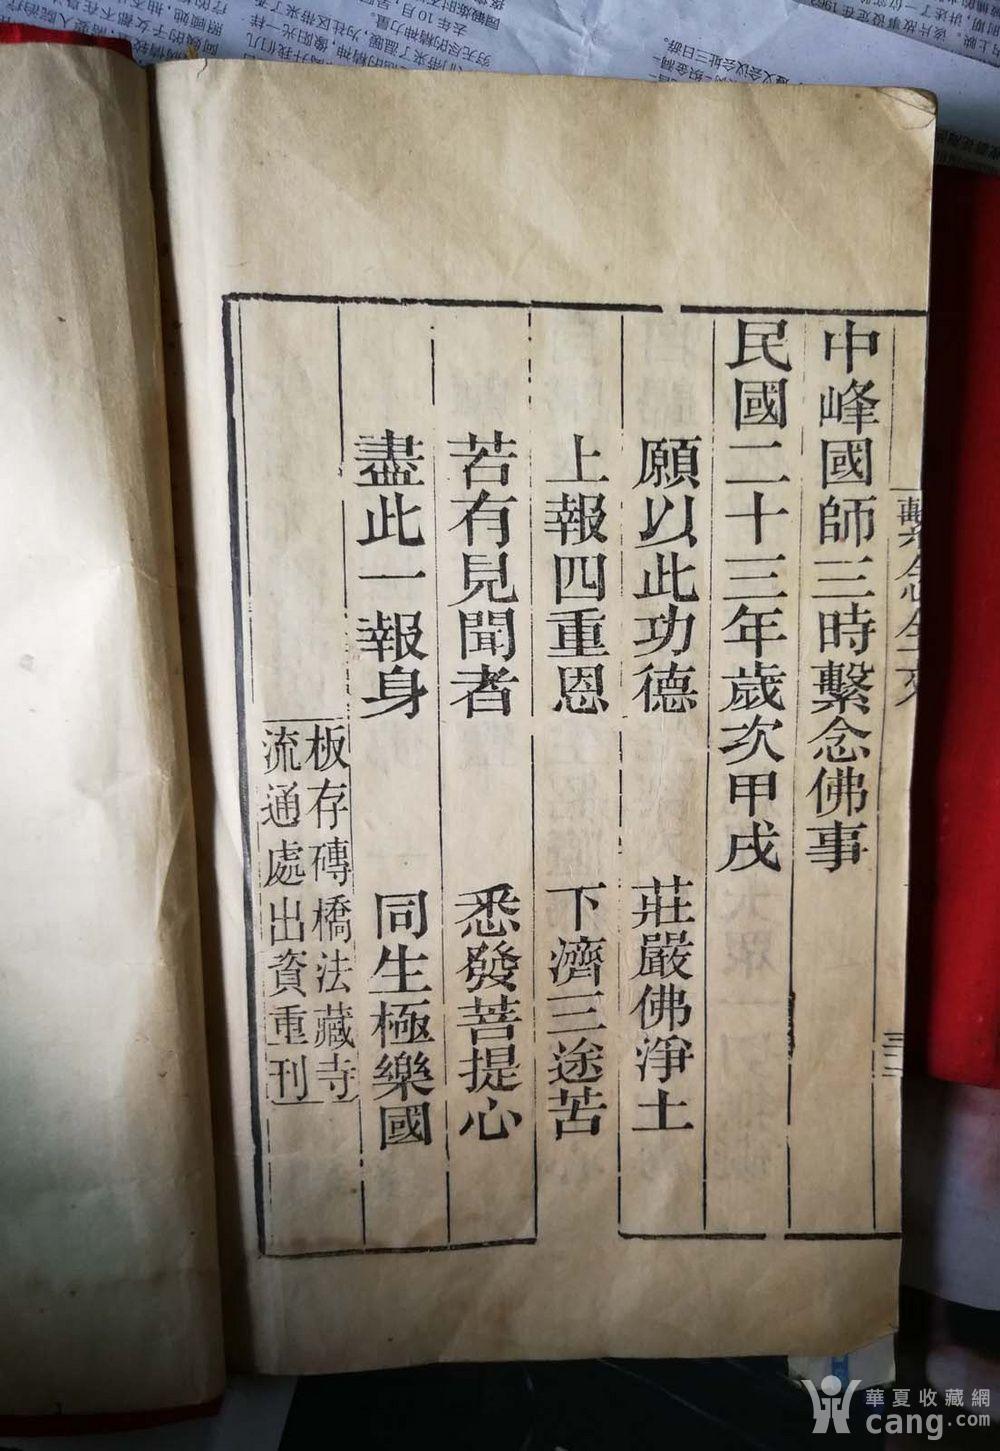 中峰國師三時繫念佛事
民國二十三年歲次甲戌
願以此功德 莊嚴佛淨土
上報四重恩 下濟三途苦
若有見聞者 悉發菩提心
盡此一報身 同生極樂國
板存磚橋法藏寺
流通處出資重刊
華夏收藏網
cang.com